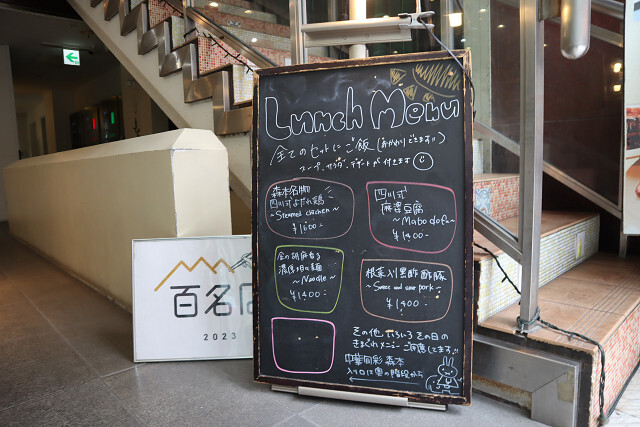 Lunch Menu
全てのセットにご飯(おかわりできます!!)
スープ、サラダ、デザートが付きます
森本名物
四川式よだれ鶏
~Steamed chicken~
¥1600-
四川式
麻婆豆腐
~Mabo dofu~
¥1400-
金の胡麻香る
濃厚担々麺
~Noodle~
¥1400-
根菜入り黒酢酢豚
~Sweet and sour pork~
¥1400-
その他 いろいろ その日の
きまぐれメニュー ご用意してます!!
中華同彩 森本
入り口は奥の階段から
百名店
2023